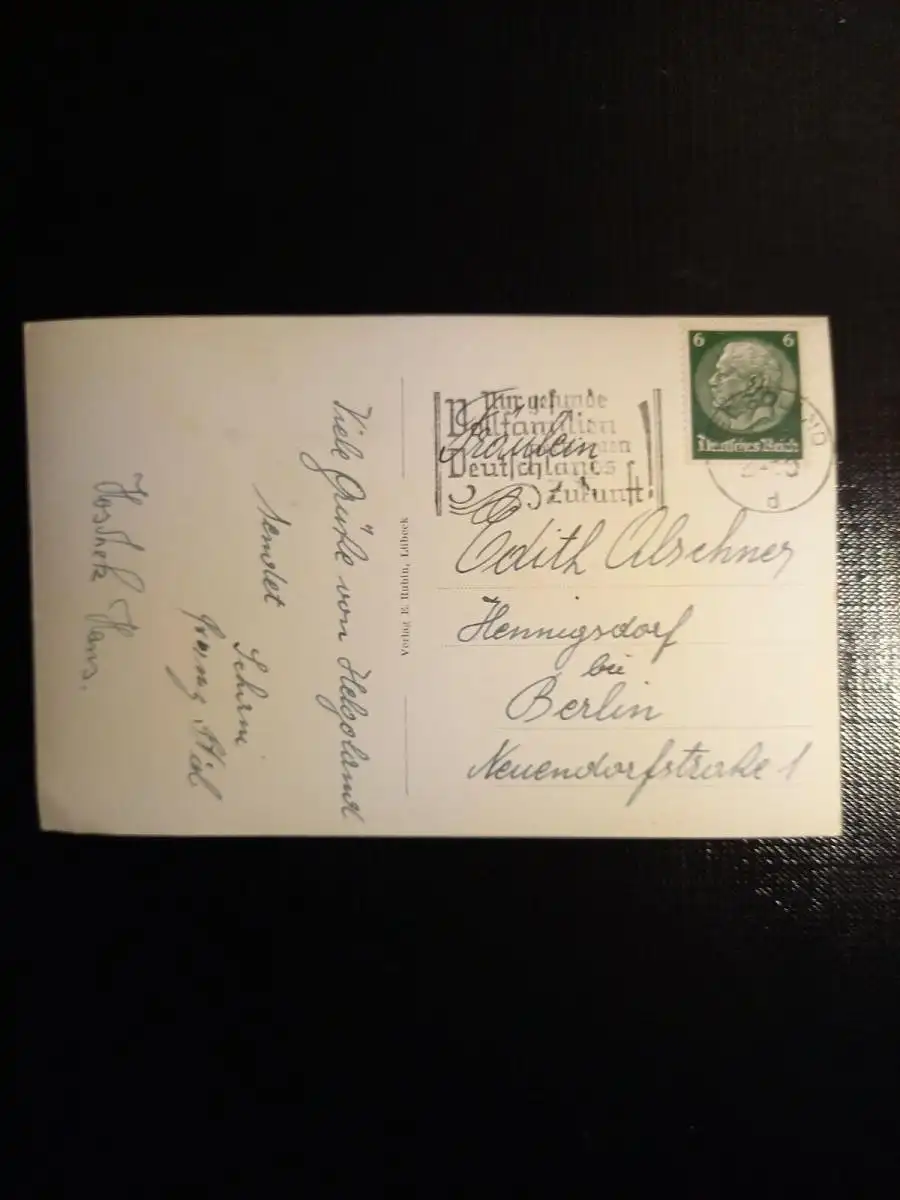 Viele Grüße von Helgoland
sendet
Hans.
Verlag E. Rubin, Lübeck
Nur gesunde
Deutschlands
Zukunft!
6 6
Deutsches Reich
Fräulein
Edith Alschner
Hennigsdorf
bei
Berlin
Neuendorfstraße 1